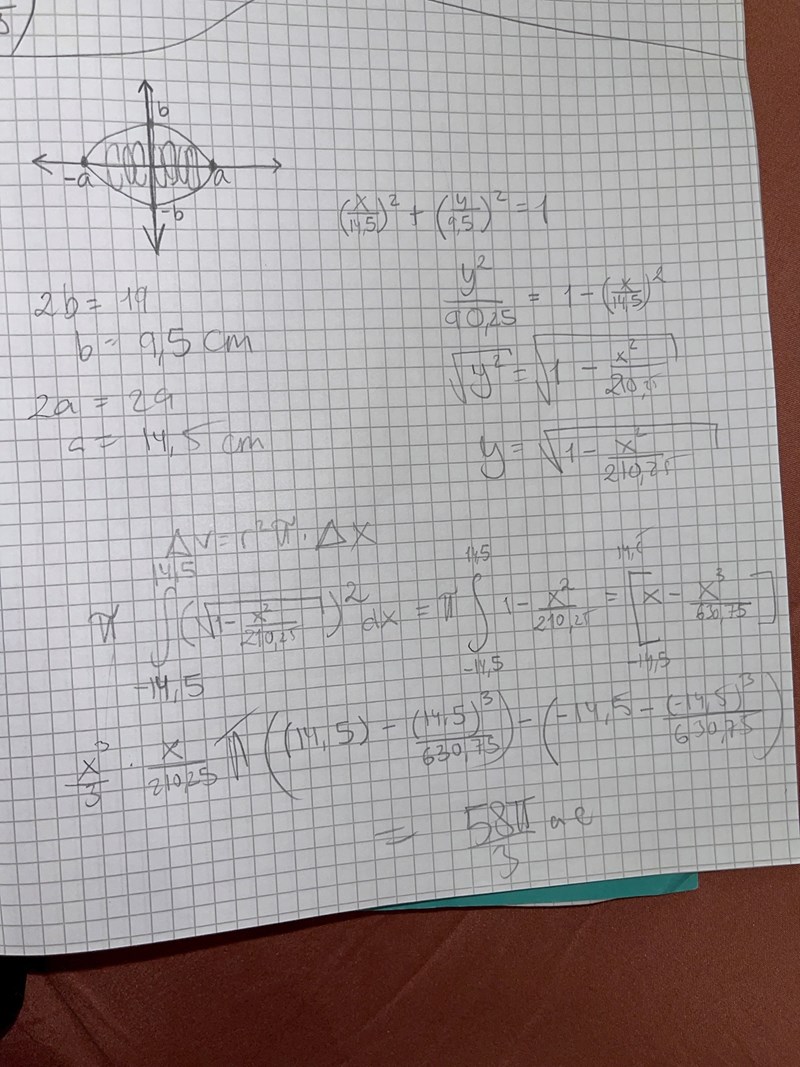 5
b
-a a
-b
(x/14,5)² + (y/9,5)² = 1
2b = 19
b = 9,5 cm
2a = 29
a = 14,5 cm
y²/90,25 = 1 - (x/14,5)²
√y² = √(1 - x²/210,25)
y = √(1 - x²/210,25)
ΔV = r²π · Δx
π ∫_{-14,5}^{14,5} (√(1 - x²/210,25))² dx = π ∫_{-14,5}^{14,5} 1 - x²/210,25 = [x - x³/630,75]_{-14,5}^{14,5}
x³/3 · x/210,25 π ((14,5) - (14,5)³/630,75) - (-14,5 - (-14,5)³/630,75)
= 58π/3 ae